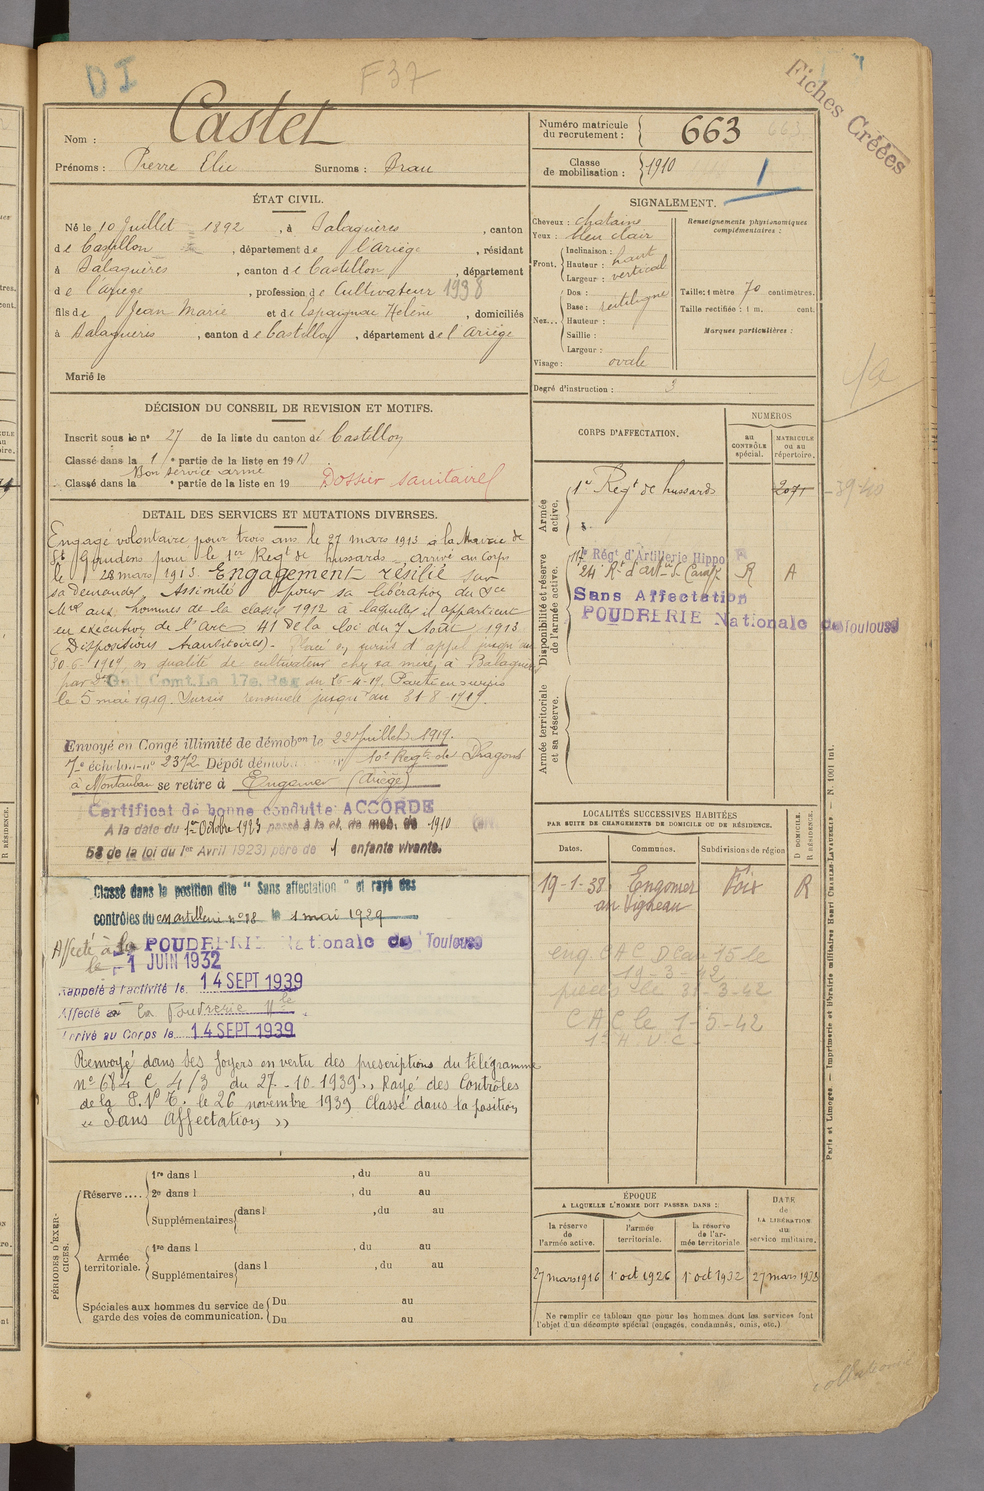 DI
F37
Fiches Créées
Nom : Castet
Prénoms : Pierre Elie Surnoms : Brau
Numéro matricule du recrutement : 663
Classe de mobilisation : 1910
1
ÉTAT CIVIL.
Né le 10 Juillet 1892, à Balaguères, canton
de Castillon, département de l'Ariège, résidant
à Balaguères, canton de Castillon, département
de l'Ariège, profession de Cultivateur 1938
fils de Jean Marie et de Espaignac Helène, domiciliés
à Balaguères, canton de Castillon, département de l'Ariège
Marié le
SIGNALEMENT.
Cheveux : chatains
Yeux : bleu clair
Front. Inclinaison : haut
Hauteur :
Largeur : vertical
Nez... Dos :
Base : rectiligne
Hauteur :
Saillie :
Largeur :
Visage : ovale
Renseignements physionomiques complémentaires :
Taille : 1 mètre 70 centimètres.
Taille rectifiée : 1 m. cent.
Marques particulières :
Degré d'instruction : 3
DÉCISION DU CONSEIL DE REVISION ET MOTIFS.
Inscrit sous le n° 27 de la liste du canton de Castillon
Classé dans la 1re partie de la liste en 1913
Bon service armé
Classé dans la e partie de la liste en 19
Dossier sanitaire
DETAIL DES SERVICES ET MUTATIONS DIVERSES.
Engagé volontaire pour trois ans le 27 mars 1913 à la Mairie de
St Gaudens pour le 1er Regt de hussards arrivé au corps
le 28 mars 1913. Engagement résilié sur
sa demande, Assimilé pour sa libération du Sce
Mre aux hommes de la classe 1912 à laquelle il appartient
en exécution de l'Art 41 de la loi du 7 Août 1913
(Dispositions transitoires). Placé en sursis d'appel jusqu'au
30-6-1919 en qualité de cultivateur chez sa mère à Balaguères
par Don Gal Comt La 17e Reg du 25-4-19. Parti en sursis
le 5 mai 1919. Sursis renouvelé jusqu'au 31-8-1919.
Envoyé en Congé illimité de démobon le 22 Juillet 1919.
7e échelon n° 2372 Dépôt démob 10e Regt de Dragons
à Montauban se retire à Engomer (Ariège)
Certificat de bonne conduite ACCORDÉ
A la date du 1er Octobre 1923 passé à la cl. de mob. de 1910 (art.
58 de la loi du 1er Avril 1923) père de 1 enfants vivants.
Classé dans la position dite " Sans affectation " et rayé des
contrôles du c. m. artillerie n° 28 le 1 mai 1929
Affecté à la POUDRERIE Nationale de Toulouse
le 1 JUIN 1932
Rappelé à l'activité le 14 SEPT 1939
Affecté à la Poudrerie Nle
Arrivé au Corps le 14 SEPT 1939
Renvoyé dans ses foyers en vertu des prescriptions du télégramme
n° 684 C 4/3 du 27-10-1939, Rayé des Contrôles
de la P.N.T. le 26 novembre 1939 Classé dans la position
" Sans Affectation "
CORPS D'AFFECTATION.
NUMÉROS
au CONTRÔLE spécial.
MATRICULE ou au répertoire.
Armée active.
1er Regt de hussards 2071
39-40
Disponibilité et réserve de l'armée active.
117e Régt d'Artillerie Hippo R
24e Rt d'artie de Campe R A
Sans Affectation
POUDRERIE Nationale de Toulouse
Armée territoriale et sa réserve.
LOCALITÉS SUCCESSIVES HABITÉES
PAR SUITE DE CHANGEMENTS DE DOMICILE OU DE RÉSIDENCE.
Dates. Communes. Subdivisions de région D DOMICILE. R RÉSIDENCE.
19-1-38 Engomer Foix R
19-3-42
pièces le 31-3-42
CAC le 1-5-42
PÉRIODES D'EXERCICES.
Réserve.... 1re dans l , du au
2e dans l , du au
Supplémentaires dans l , du au
Armée territoriale. 1re dans l , du au
Supplémentaires dans l , du au
Spéciales aux hommes du service de garde des voies de communication. Du au
Du au
ÉPOQUE
A LAQUELLE L'HOMME DOIT PASSER DANS :
la réserve de l'armée active.
l'armée territoriale.
la réserve de l'armée territoriale.
DATE de LA LIBÉRATION du service militaire.
27 mars 1916 1er oct 1926 1er oct 1932 27 mars 1938
Ne remplir ce tableau que pour les hommes dont les services font
l'objet d'un décompte spécial (engagés, condamnés, omis, etc.)
Paris et Limoges. — Imprimerie et librairie militaires Henri CHARLES-LAVAUZELLE. — N. 1001 int.
collationné